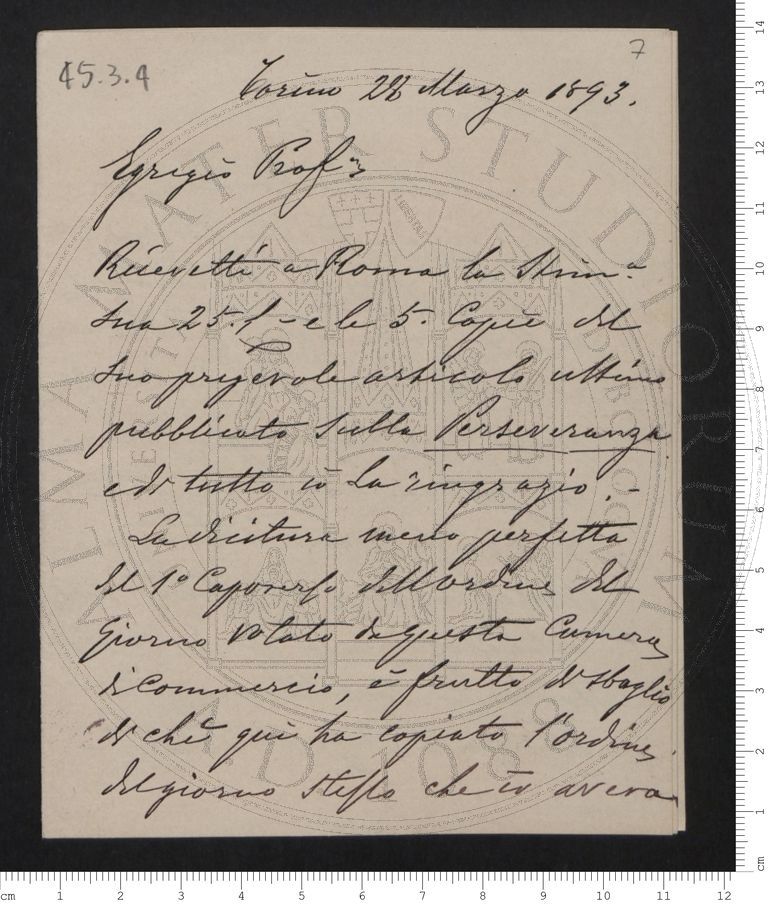 45.3.4
7
Torino 28 Marzo 1893.
Egregio Prof.
Ricevetti a Roma la Stim.a
Sua 25. e le 5. Copie del
Suo pregevole articolo ultimo
pubblicato sulla Perseveranza
e di tutto ciò La ringrazio. -
La dicitura meno perfetta
del 1° Capoverso dell'ordine del
giorno votato da questa Camera
di commercio, è frutto di sbaglio
di chi qui ha copiato l'ordine
del giorno stesso che io aveva
ALMA MATER STUDIORUM
A.D. 1088